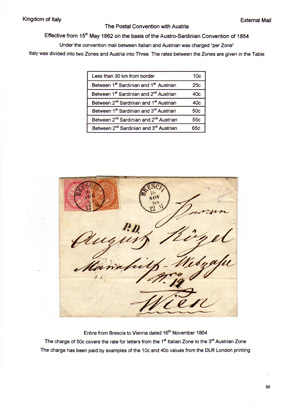 Kingdom of Italy
External Mail
The Postal Convention with Austria
Effective from 15th May 1862 on the basis of the Austro-Sardinian Convention of 1854
Under the convention mail between Italian and Austrian was charged "per Zone"
Italy was divided into two Zones and Austria into Three. The rates between the Zones are given in the Table
Less than 30 km from border 10c
Between 1st Sardinian and 1st Austrian 25c
Between 1st Sardinian and 2nd Austrian 40c
Between 2nd Sardinian and 1st Austrian 40c
Between 1st Sardinian and 3rd Austrian 50c
Between 2nd Sardinian and 2nd Austrian 55c
Between 2nd Sardinian and 3rd Austrian 65c
BRESCIA
NOV
P.D.
AugustKözel
Wien
Entire from Brescia to Vienne dated 16th November 1864
The charge of 50c covers the rate for letters from the 1st Italian Zone to the 3rd Austrian Zone
The charge has been paid by examples of the 10c and 40c values from the DLR London printing